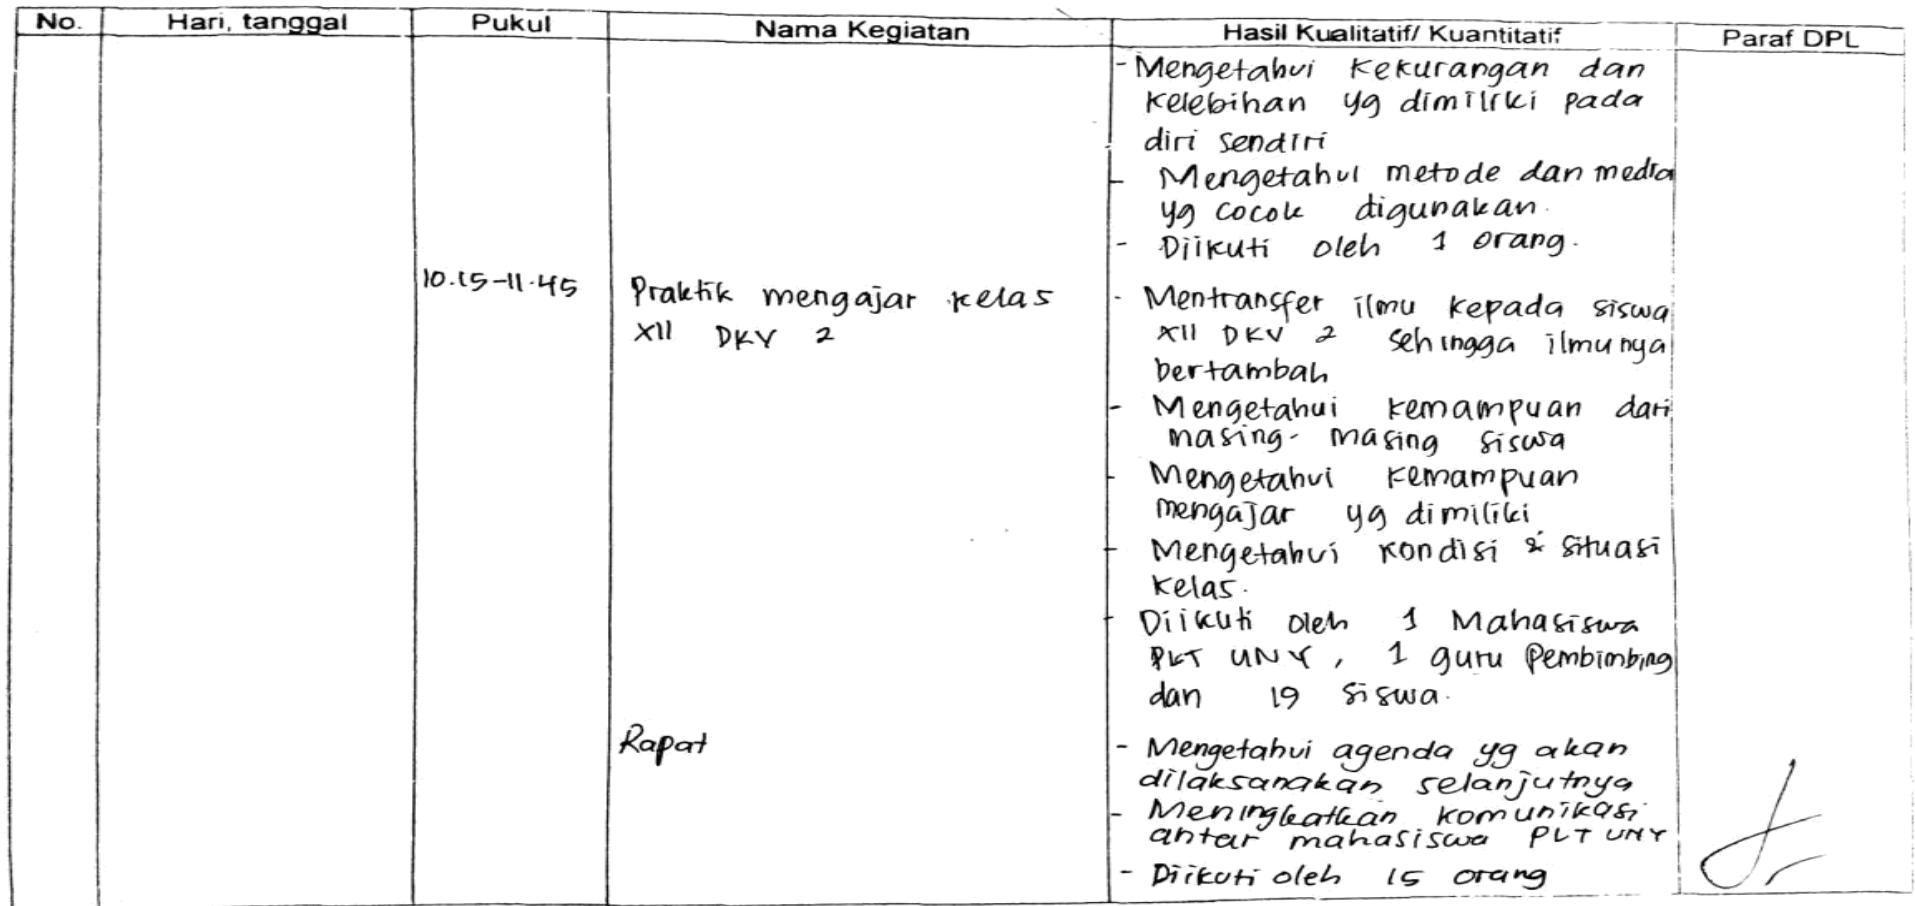 No. Hari, tanggal Pukul Nama Kegiatan Hasil Kualitatif/ Kuantitatif Paraf DPL
- Mengetahui kekurangan dan
kelebihan yg dimiliki pada
diri sendiri
- Mengetahui metode dan media
yg cocok digunakan.
- Diikuti oleh 1 orang.
10.15-11.45 Praktik mengajar kelas - Mentransfer ilmu kepada siswa
XII DKV 2 XII DKV 2 sehingga ilmunya
bertambah
- Mengetahui kemampuan dari
masing-masing siswa
- Mengetahui kemampuan
mengajar yg dimiliki
- Mengetahui kondisi & situasi
kelas.
- Diikuti oleh 1 Mahasiswa
PLT UNY, 1 guru Pembimbing
dan 19 siswa.
Rapat - Mengetahui agenda yg akan
dilaksanakan selanjutnya
- Meningkatkan komunikasi
antar mahasiswa PLT UNY
- Diikuti oleh 15 orang